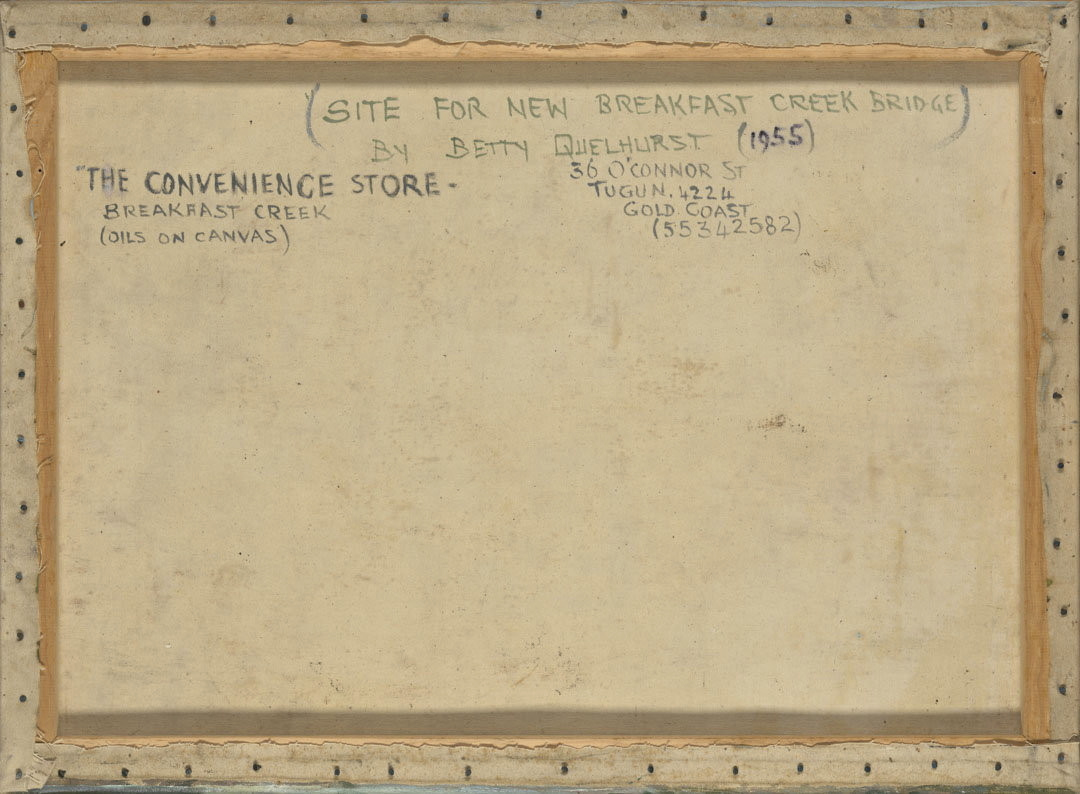 (SITE FOR NEW BREAKFAST CREEK BRIDGE)
BY BETTY QUELHURST (1955)
"THE CONVENIENCE STORE -
BREAKFAST CREEK
(OILS ON CANVAS)
36 O'CONNOR ST
TUGUN. 4224
GOLD COAST
(55342582)